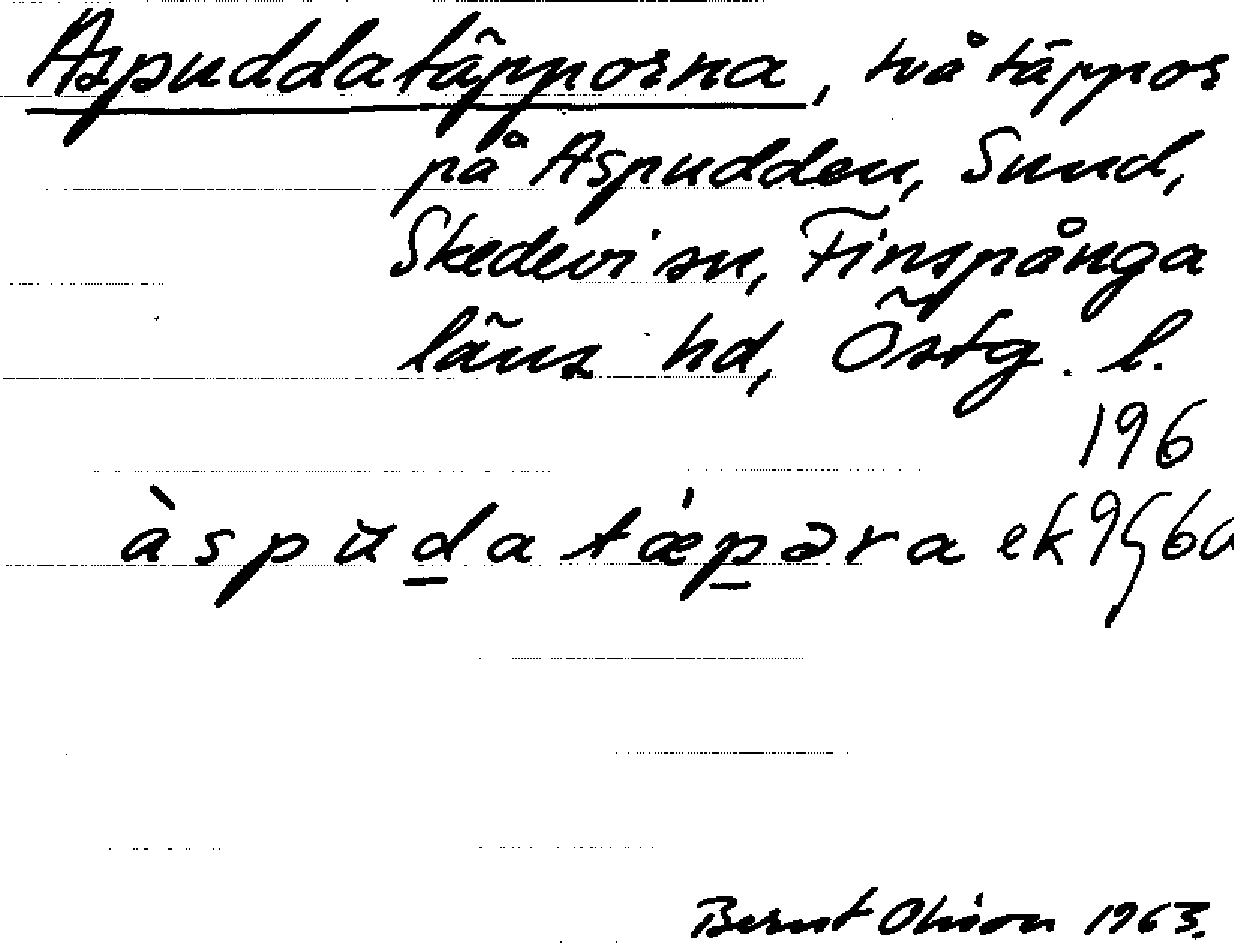 Aspuddatäpporna, två täppor
på Aspudden, Sund,
Skedevi sn, Finspånga
läns hd, Östg. l.
196
àspŭd̲a tæ̍p̲əra ek 9G6a
Bernt Olsson 1963.